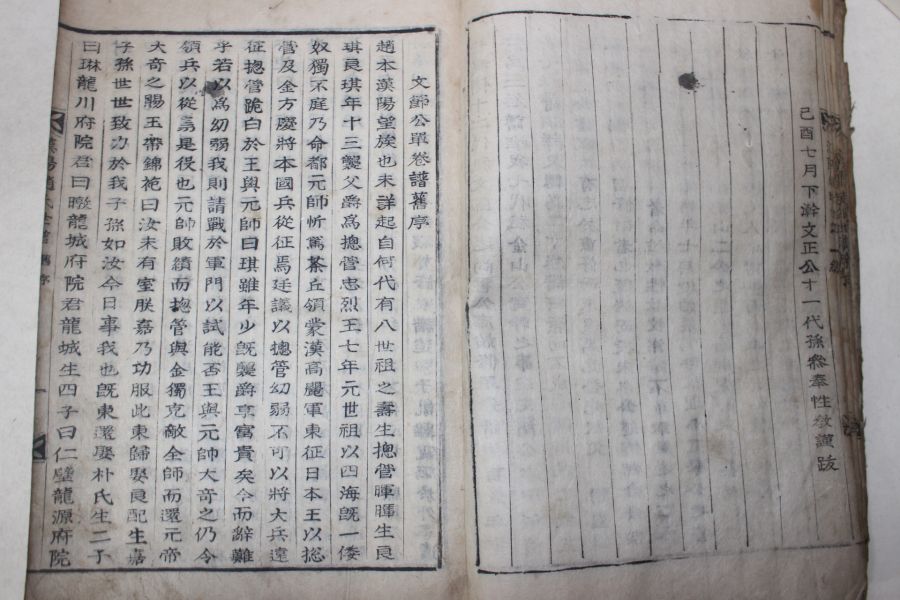 己酉七月下澣文正公十一代孫參奉性敎謹跋
文節公單卷譜舊序
趙本漢陽望族也未詳起自何代有八世祖之壽生摠管暉暉生良
琪良琪年十三襲父爵爲摠管忠烈王七年元世祖以四海旣一倭
奴獨不庭乃命都元帥忻篤茶丘領蒙漢高麗軍東征日本王以摠
管及金方慶將本國兵從征焉廷議以摠管幼弱不可以將大兵遠
征摠管跪白於王與元帥曰琪雖年少旣襲爵享富貴矣今而辭難
乎若以爲幼弱我則請戰於軍門以試能否王與元帥大奇之仍令
領兵以從焉是役也元帥敗績而摠管與金獨克敵全師而還元帝
大奇之賜玉帶錦袍曰汝未有室朕嘉乃功服此東歸娶良配生嘉
子孫世世致力於我子孫如汝今日事我也旣東還娶朴氏生二子
曰琳龍川府院君曰暾龍城府院君龍城生四子曰仁璧龍源府院